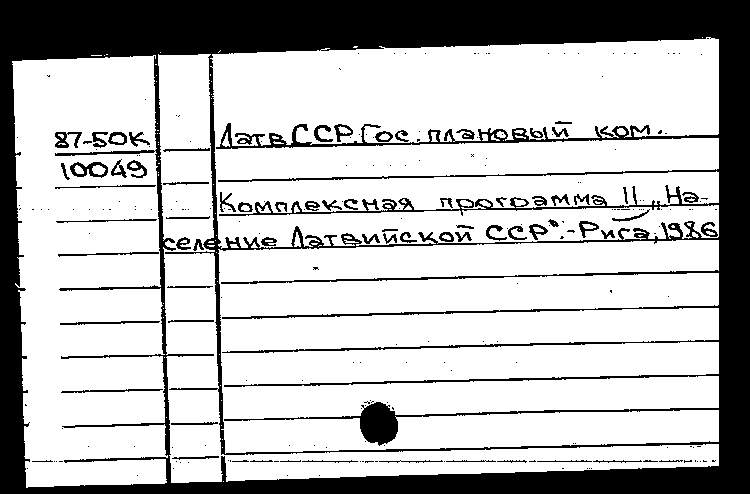 87-50К
10049
Латв.ССР.Гос. плановый ком.
Комплексная программа 11 „На-
селение Латвийской ССР".-Рига, 1986